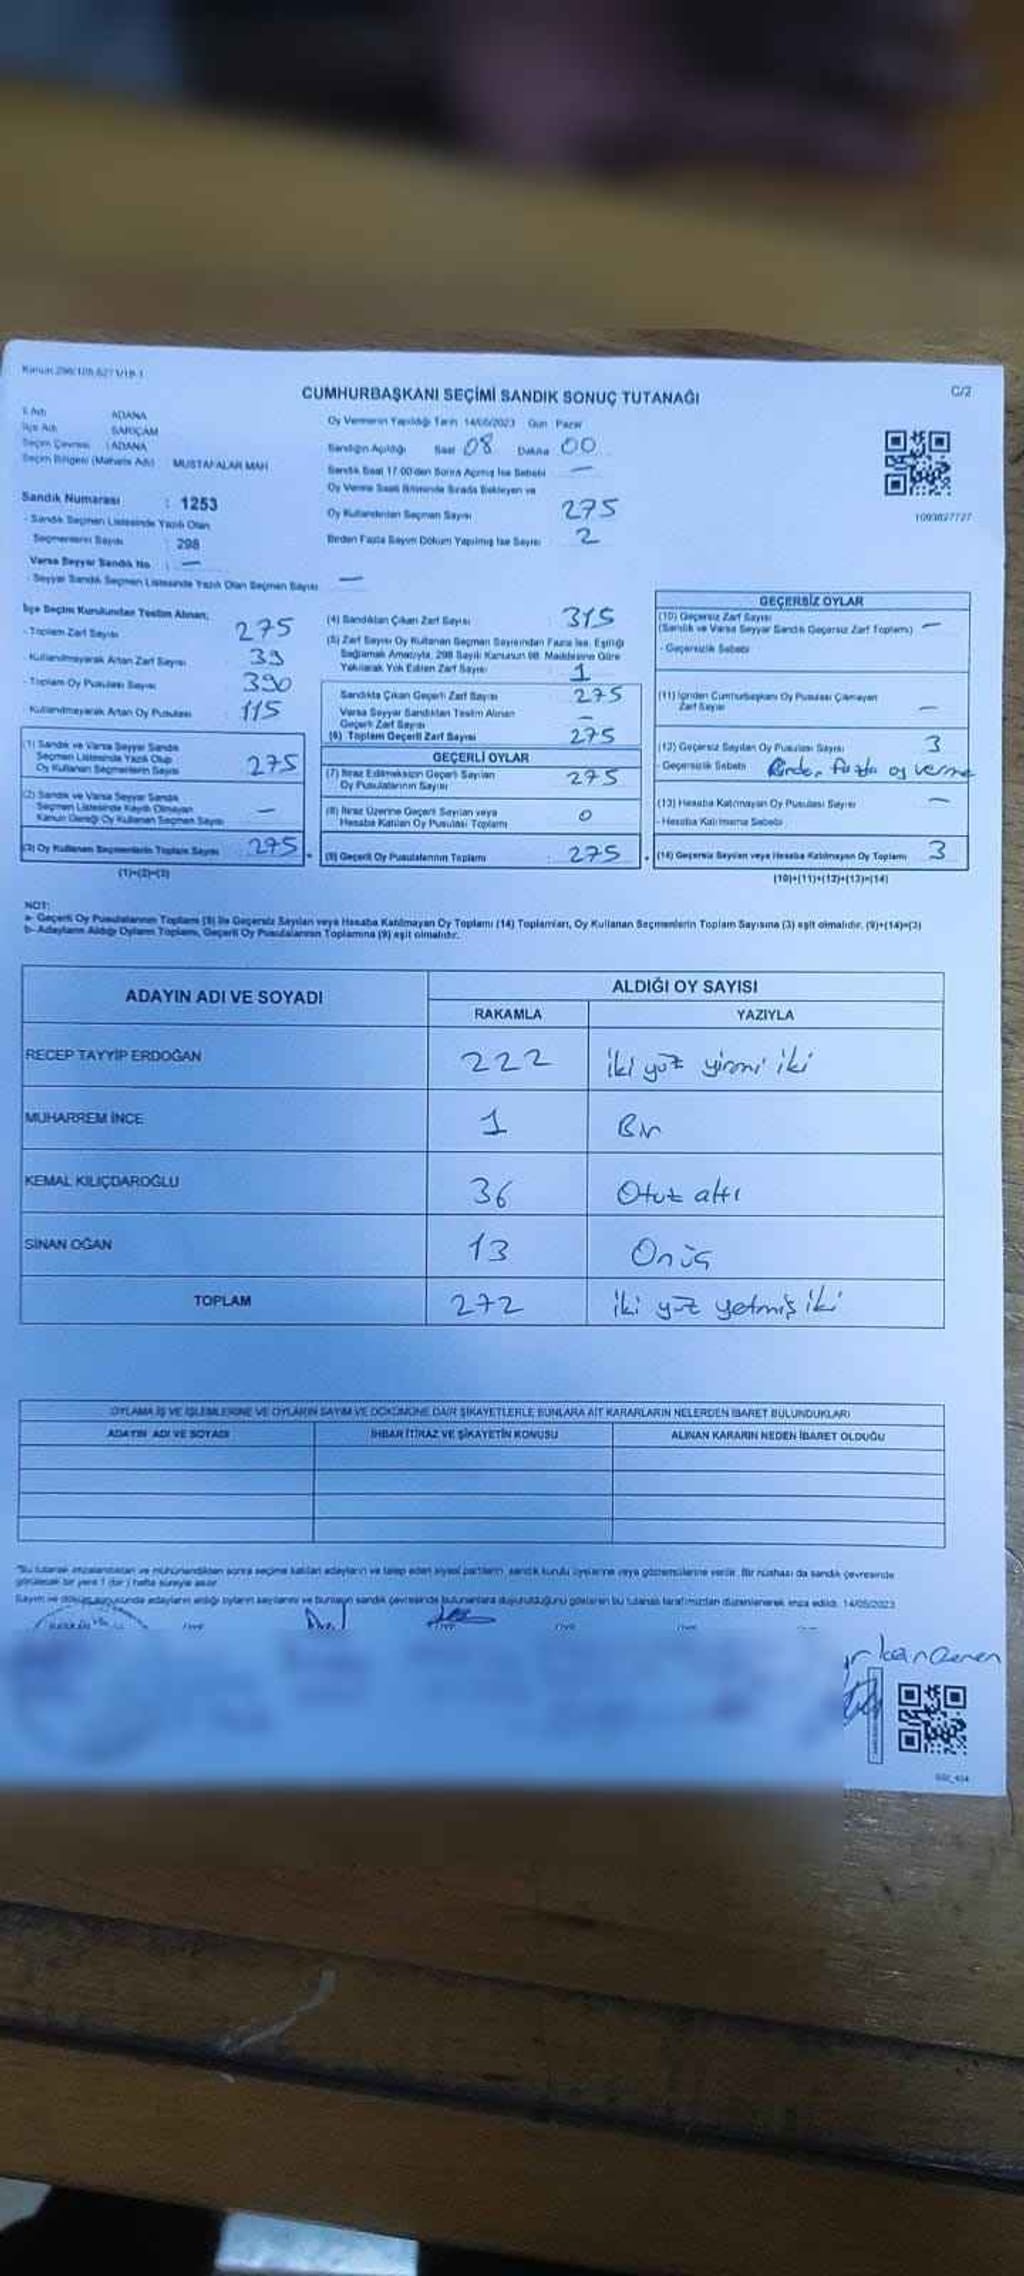 CUMHURBAŞKANI SEÇİMİ SANDIK SONUÇ TUTANAĞI
C/2
İl Adı ADANA
İlçe Adı SARIÇAM
Seçim Çevresi : ADANA
Seçim Bölgesi (Mahalle Adı) MUSTAFALAR MAH
Oy Vermenin Yapıldığı Tarih 14/05/2023 Gün Pazar
Sandığın Açıldığı Saat 08 Dakika 00
Sandık Saat 17:00'den Sonra Açılmış İse Sebebi —
Oy Verme Saati Bitiminde Sırada Bekleyen ve
Oy Kullandırılan Seçmen Sayısı 275
Birden Fazla Sayım Döküm Yapılmış İse Sayısı 2
1093827727
Sandık Numarası : 1253
- Sandık Seçmen Listesinde Yazılı Olan
Seçmenlerin Sayısı : 298
Varsa Seyyar Sandık No : —
- Seyyar Sandık Seçmen Listesinde Yazılı Olan Seçmen Sayısı —
İlçe Seçim Kurulundan Teslim Alınan;
- Toplam Zarf Sayısı 275
- Kullanılmayarak Artan Zarf Sayısı 39
- Toplam Oy Pusulası Sayısı 390
- Kullanılmayarak Artan Oy Pusulası 115
(1) Sandık ve Varsa Seyyar Sandık
Seçmen Listesinde Yazılı Olup
Oy Kullanan Seçmenlerin Sayısı 275
(2) Sandık ve Varsa Seyyar Sandık
Seçmen Listesinde Kayıtlı Olmayan
Kanun Gereği Oy Kullanan Seçmen Sayısı —
(3) Oy Kullanan Seçmenlerin Toplam Sayısı 275
(1)+(2)=(3)
(4) Sandıktan Çıkan Zarf Sayısı 315
(5) Zarf Sayısı Oy Kullanan Seçmen Sayısından Fazla İse, Eşitliği
Sağlamak Amacıyla, 298 Sayılı Kanunun 98. Maddesine Göre
Yakılarak Yok Edilen Zarf Sayısı 1
Sandıkta Çıkan Geçerli Zarf Sayısı 275
Varsa Seyyar Sandıktan Teslim Alınan
Geçerli Zarf Sayısı —
(6) Toplam Geçerli Zarf Sayısı 275
GEÇERLİ OYLAR
(7) İtiraz Edilmeksizin Geçerli Sayılan
Oy Pusulalarının Sayısı 275
(8) İtiraz Üzerine Geçerli Sayılan veya
Hesaba Katılan Oy Pusulası Toplamı 0
(9) Geçerli Oy Pusulalarının Toplamı : 275
GEÇERSİZ OYLAR
(10) Geçersiz Zarf Sayısı
(Sandık ve Varsa Seyyar Sandık Geçersiz Zarf Toplamı) —
- Geçersizlik Sebebi
(11) İçinden Cumhurbaşkanı Oy Pusulası Çıkmayan
Zarf Sayısı —
(12) Geçersiz Sayılan Oy Pusulası Sayısı 3
- Geçersizlik Sebebi Birden fazla oy verme
(13) Hesaba Katılmayan Oy Pusulası Sayısı —
- Hesaba Katılmama Sebebi
(14) Geçersiz Sayılan veya Hesaba Katılmayan Oy Toplamı 3
(10)+(11)+(12)+(13)=(14)
NOT:
a- Geçerli Oy Pusulalarının Toplamı (9) ile Geçersiz Sayılan veya Hesaba Katılmayan Oy Toplamı (14) Toplamları, Oy Kullanan Seçmenlerin Toplam Sayısına (3) eşit olmalıdır. (9)+(14)=(3)
b- Adayların Aldığı Oyların Toplamı, Geçerli Oy Pusulalarının Toplamına (9) eşit olmalıdır.
ADAYIN ADI VE SOYADI ALDIĞI OY SAYISI
RAKAMLA YAZIYLA
RECEP TAYYİP ERDOĞAN 222 iki yüz yirmi iki
MUHARREM İNCE 1 Bir
KEMAL KILIÇDAROĞLU 36 Otuz altı
SİNAN OĞAN 13 Onüç
TOPLAM 272 iki yüz yetmiş iki
OYLAMA İŞ VE İŞLEMLERİNE VE OYLARIN SAYIM VE DÖKÜMÜNE DAİR ŞİKAYETLERLE BUNLARA AİT KARARLARIN NELERDEN İBARET BULUNDUKLARI
ADAYIN ADI VE SOYADI İHBAR İTİRAZ VE ŞİKAYETİN KONUSU ALINAN KARARIN NEDEN İBARET OLDUĞU
*Bu tutanak imzalandıktan ve mühürlendikten sonra seçime katılan adayların ve talep eden siyasi partilerin, sandık kurulu üyelerine veya gözlemcilerine verilir. Bir nüshası da sandık çevresinde
görülecek bir yere 1 (bir) hafta süreyle asılır.
Sayım ve döküm sonucunda adayların aldığı oyların sayılarını ve bunların sandık çevresinde bulunanlara duyurulduğunu gösteren bu tutanak tarafımızdan düzenlenerek imza edildi. 14/05/2023